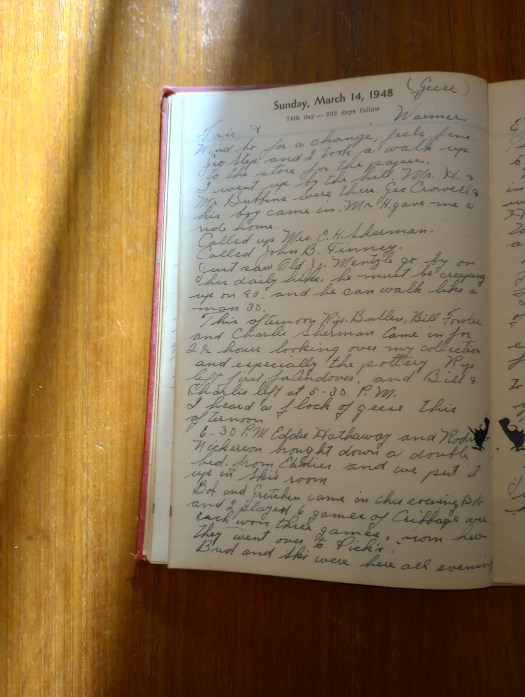 (Geese)
Sunday, March 14, 1948
74th day — 292 days follow
Fair & Warmer
Wind No for a change, feels fine
Geo Stex and I took a walk up
to the store for the paper.
I went up by the hill Mr. H. &
Mr Bubbins were there. Geo Crowell &
his boy came in. Mr. H. gave me a
ride home
Called up Mrs C. H. Sherman.
Called John B. Finney.
Just saw Old Jo. Mentzle go by on
his daily hike. he must be creeping
up on 80. and he can walk like a
man 30.
This afternoon Rys. Buller, Bill Fowler
and Charlie Sherman came in for
2 ½ hours looking over my collection
and especially the pottery Rys
left first and Bill &
Charlie left at 5-30 P.M.
I heard a flock of geese this
afternoon
6-30 P.M Eddie Hathaway and
Nickerson brought down a double
bed. from Eddies and we put it
up in Skis room
Bob and Gretchen came in this evening Bob
and I played 6 games of Cribbage over
each won three games, from here
they went over to Dick's
Bud and Ski were here all evening